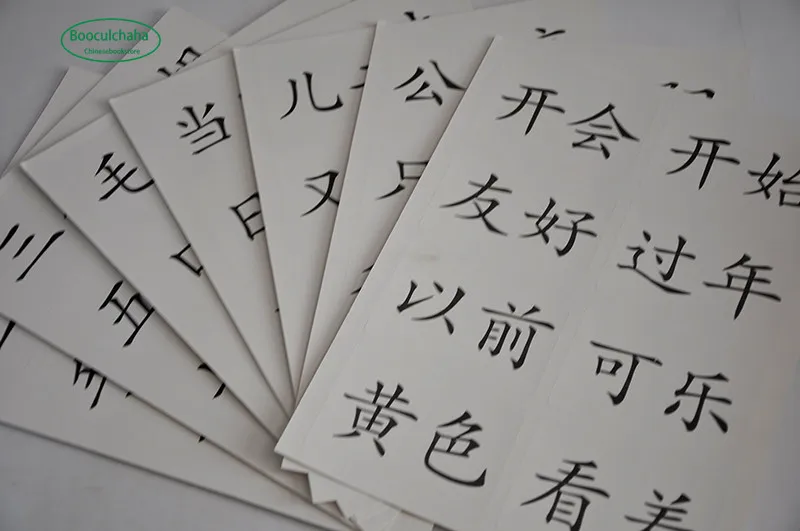 Booculchaha
Chinesebookstore
开会 开始
友好 过年
以前 可乐
黄色 看着
公
只
儿
又
当
日
毛
五
三